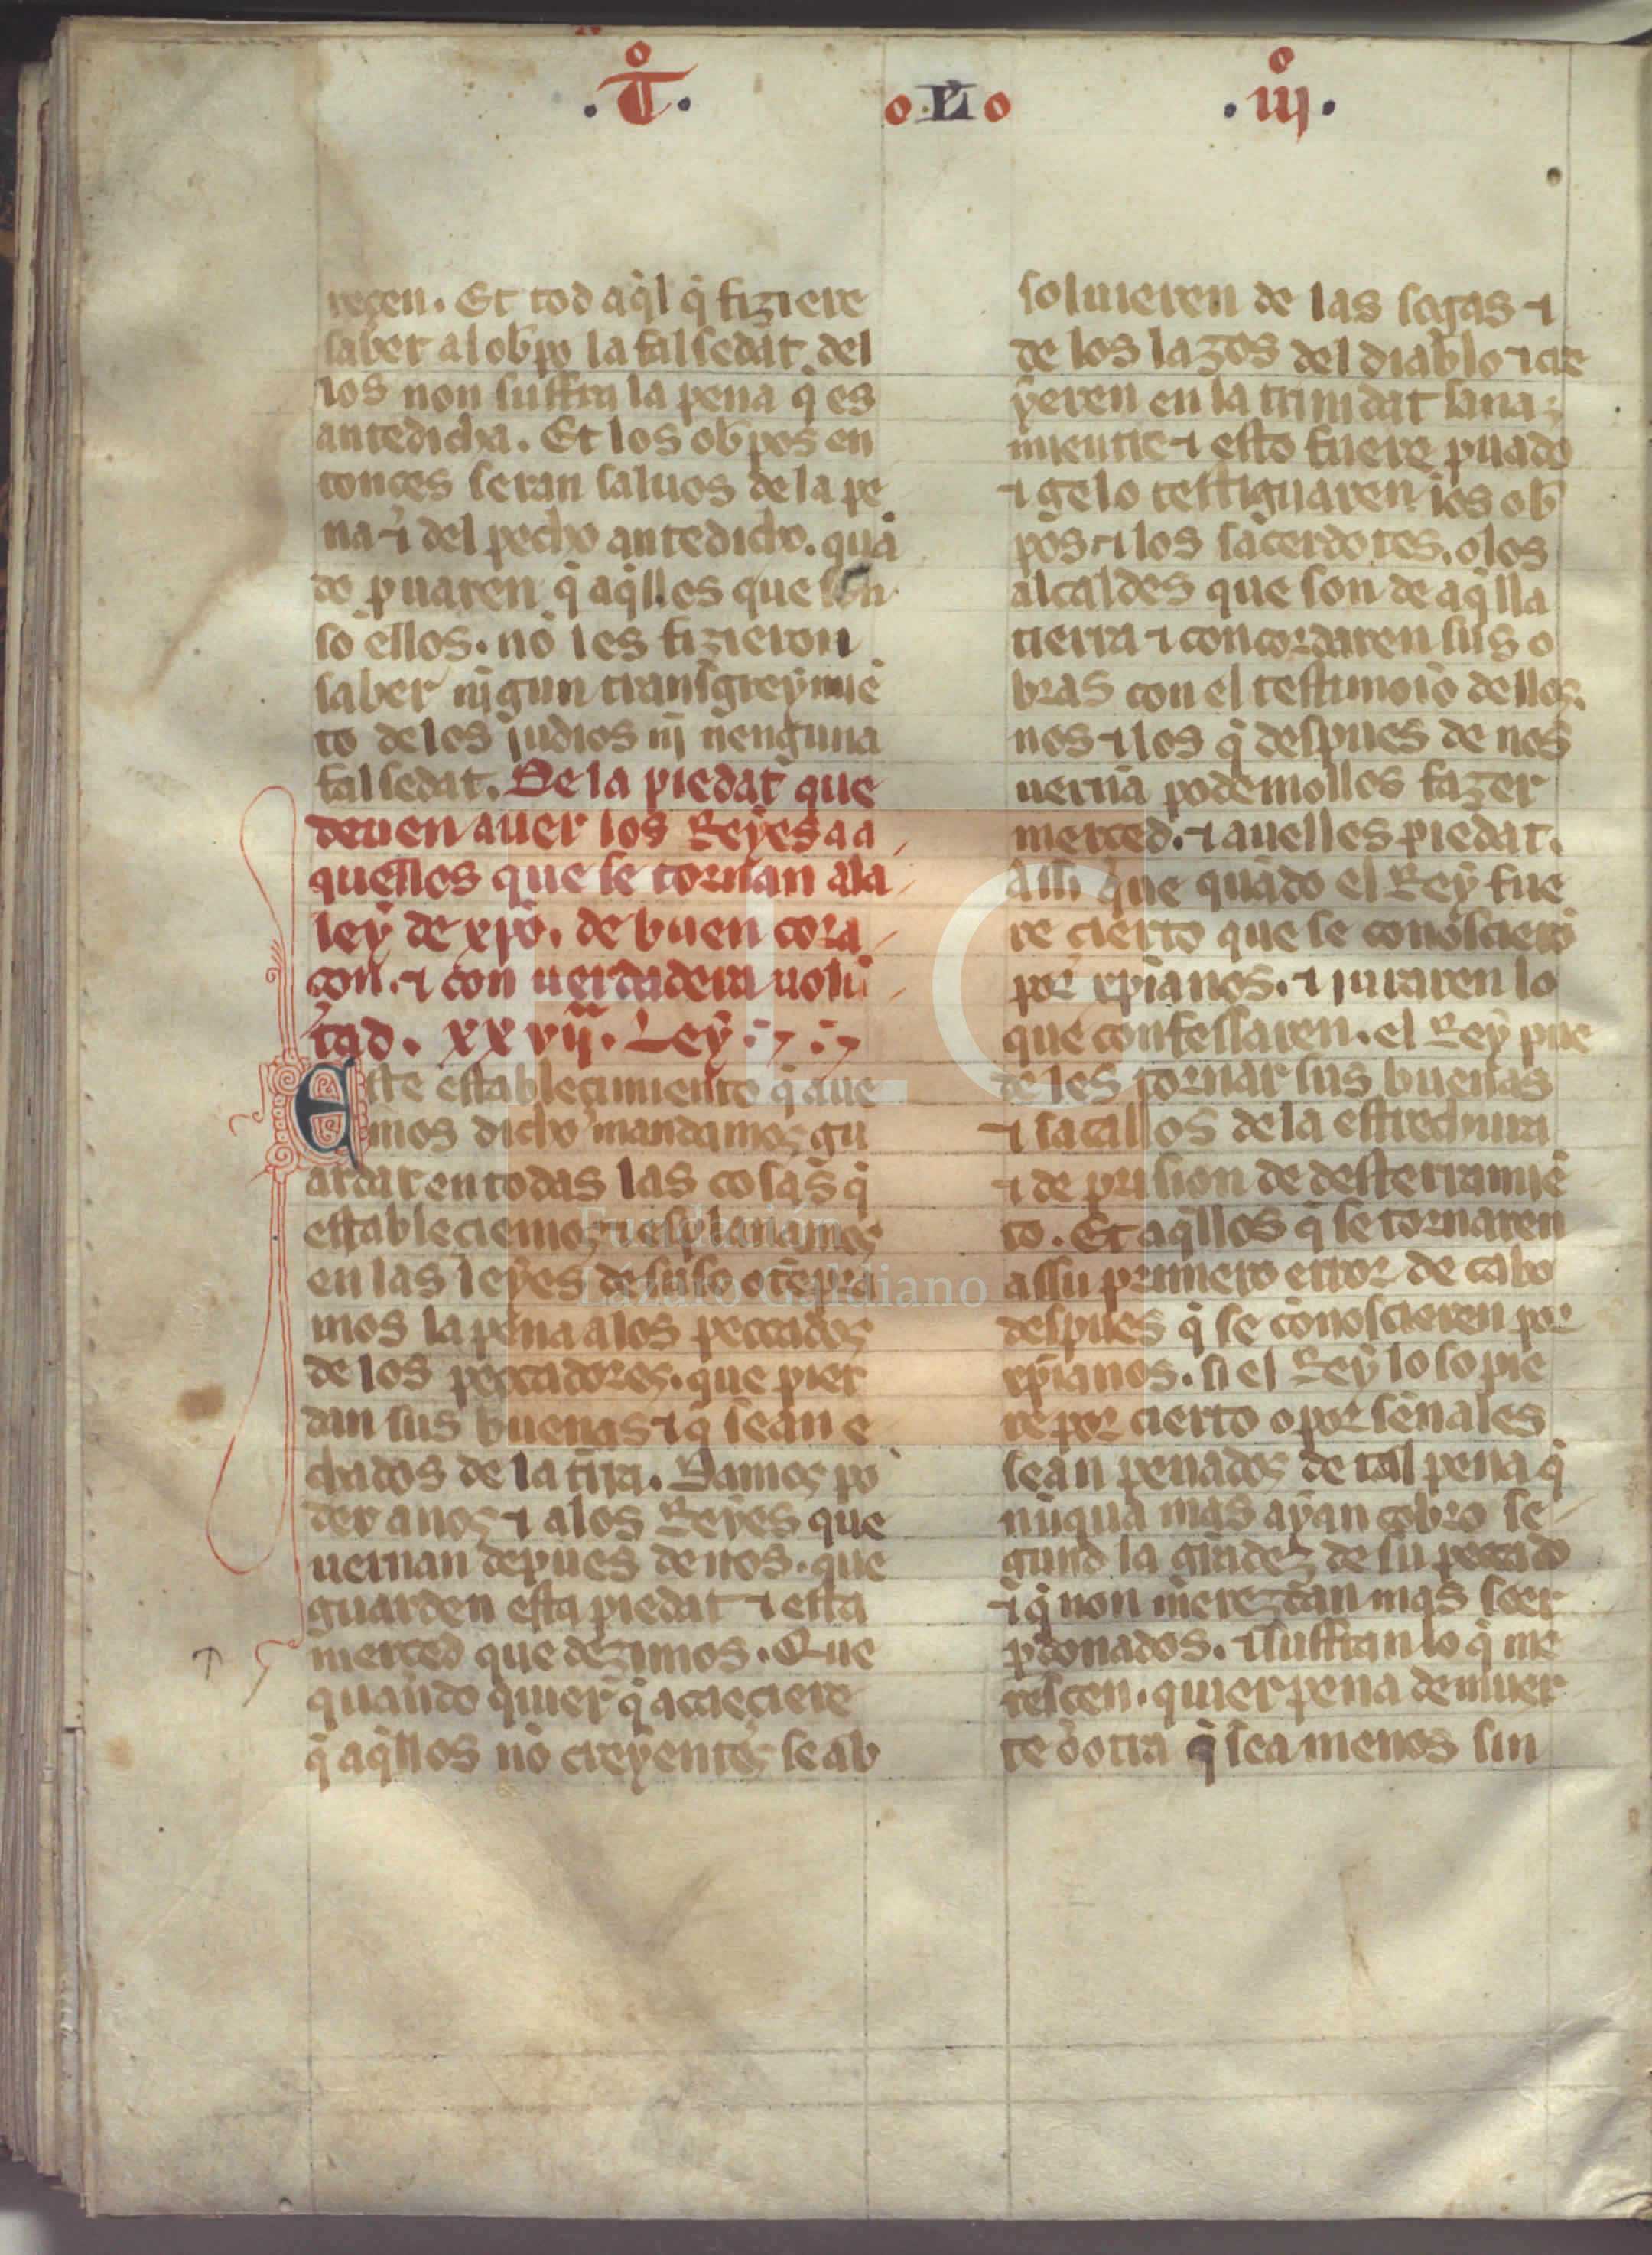 .Tͦ. o.L.o .iijͦ.
reçen. Et tod aq̃l q̃ fiziere
saber al ob̃po la falsedat del
los non suffra la pena q̃ es
antedicha. Et los ob̃pos en
tonçes seran saluos de la pe
na ⁊ del pecho antedicho. quã
do p̃uaren q̃ aq̃llos que son
so ellos. nõ les fizieron
saber nĩgun transgreymiẽ
to de los judios nĩ nenguna
falsedat. De la piedat que
deuen auer los Reyes a a
quellos que se tornan a la
ley de xp̃o. de buen cora
çon. ⁊ con uerdadera uolũ
tad. xxvij. Ley.
Este establecimiento q̃ aue
mos dicho mandamos gu
ardar en todas las cosas q̃
establesciemos ⁊ esplanamos
en las leyes de suso o tẽpra
mos la pena a los peccados
de los peccadores. que pier
dan sus buenas ⁊ q̃ sean e
chados de la tr̃ra. Damos po
der a nos ⁊ a los Reyes que
uernan depues de nos. que
guarden esta piedat ⁊ esta
merced que dezimos. Que
quando quier q̃ acaeciere
q̃ aq̃llos nõ creyentes se ab
soluieren de las sogas ⁊
de los lazos del diablo ⁊ cre
yeren en la trinidat sana
mientre ⁊ esto fuere p̃uado
⁊ gelo testiguaren los ob̃
pos ⁊ los sacerdotes. o los
alcaldes que son de aq̃lla
tierra ⁊ concordaren sus o
bras con el testimoĩo dellos.
nos ⁊ los q̃ despues de nos
uernã podemoslos fazer
merced. ⁊ auelles piedat.
Assi que quãdo el Rey fue
re cierto que se conosciero
por xp̃ianos. ⁊ juraren lo
que confessaren. el Rey pue
de les tornar sus buenas
⁊ sacallos de la estrechura
⁊ de prision de desterramiẽ
to. Et aq̃llos q̃ se tornaren
a ssu primero error de cabo
despues q̃ se conoscieren por
xp̃ianos. si el Rey lo sopie
re por cierto o por senales
sean penados de tal pena q̃
nũqua mas ayan cobro se
gund la grãdez de su peccado
⁊ q̃ non merezcan mas seer
p̃donados. ⁊ suffran lo q̃ me
rescen. quier pena de muer
te o otra q̃ sea menos sin
Fundación
Lázaro Galdiano